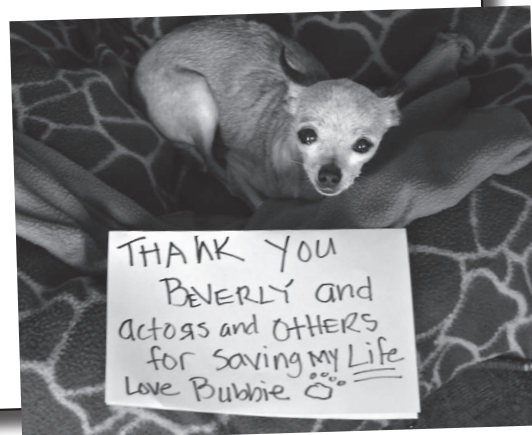 THANK YOU
BEVERLY and
actors and OTHERS
for saving my Life
Love Bubbie